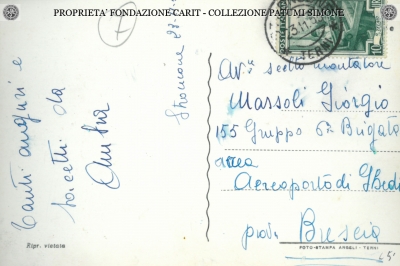 PROPRIETA' FONDAZIONE CARIT - COLLEZIONE PATUMI SIMONE
7
Stroncone
Tanti auguri e
bacetti da
Av.re scelto montatore
Massoli Giorgio
155 Gruppo 6ª Brigata
aerea
Aereoporto di Ghedi
prov. Brescia
Ripr. vietata
FOTO-STAMPA ANGELI - TERNI
TERNI